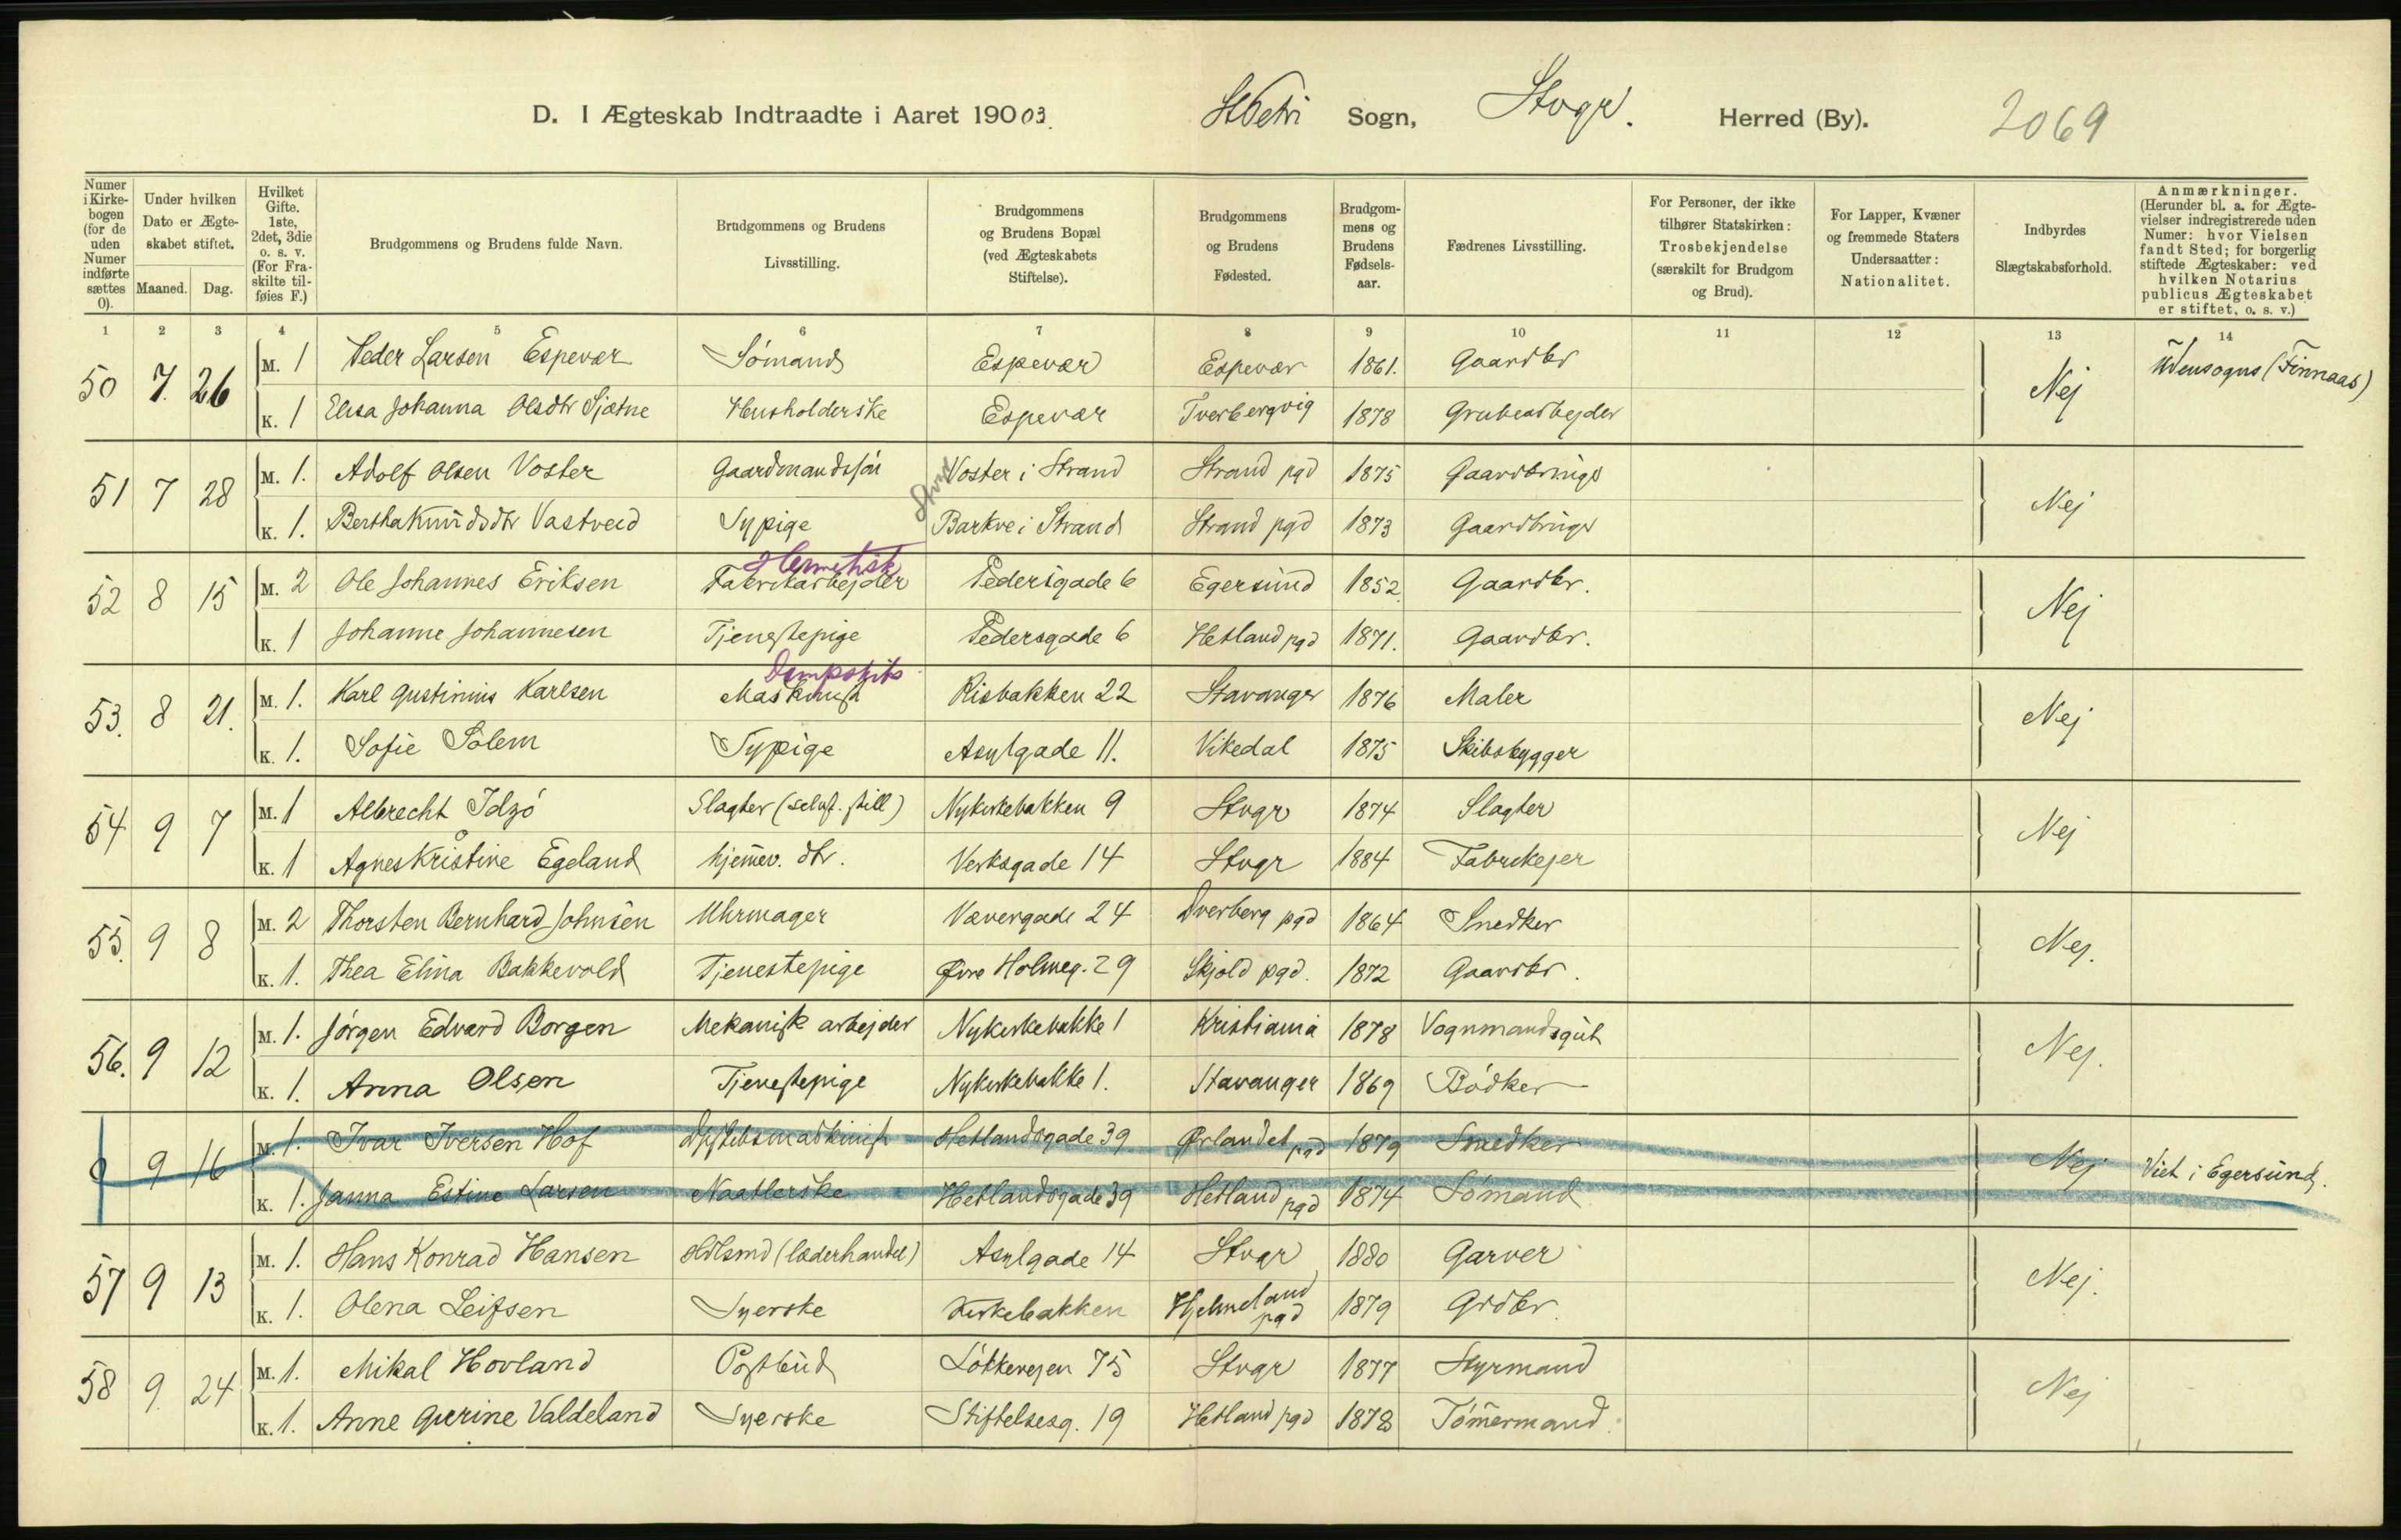 D. I Ægteskab Indtraadte i Aaret 19003. St. Petri Sogn, Stvgr. Herred (By). 2069
Numer i Kirkebogen (for de uden Numer indførte sættes 0).
Under hvilken Dato er Ægteskabet stiftet.
Maaned. Dag.
Hvilket Gifte. 1ste, 2det, 3die o. s. v. (For Fraskilte tilføies F.)
Brudgommens og Brudens fulde Navn.
Brudgommens og Brudens Livsstilling.
Brudgommens og Brudens Bopæl (ved Ægteskabets Stiftelse).
Brudgommens og Brudens Fødested.
Brudgommens og Brudens Fødselsaar.
Fædrenes Livsstilling.
For Personer, der ikke tilhører Statskirken: Trosbekjendelse (særskilt for Brudgom og Brud).
For Lapper, Kvæner og fremmede Staters Undersaatter: Nationalitet.
Indbyrdes Slægtskabsforhold.
Anmærkninger. (Herunder bl. a. for Ægtevielser indregistrerede uden Numer: hvor Vielsen fandt Sted; for borgerlig stiftede Ægteskaber: ved hvilken Notarius publicus Ægteskabet er stiftet, o. s. v.)
1 2 3 4 5 6 7 8 9 10 11 12 13 14
50 7. 26 M. 1 Peder Larsen Espevær Sømand Espevær Espevær 1861. Gaardbr Nej Udensogns (Finnaas)
K. 1 Elisa Johanna Olsdtr Sjøtne Husholderske Espevær Tverbergvig 1878 Grubearbejder
51 7 28 M. 1. Adolf Olsen Voster Gaardmandssøn Voster i Strand Strand pgd 1875 Gaardbruger Nej
K. 1. Bertha Knudsdtr Vastveid Sypige Barkve i Strand Strand pgd 1873 Gaardbruger
Hermetisk
52 8 15 M. 2 Ole Johannes Eriksen Fabrikarbejder Pedersgade 6 Egersund 1852. Gaardbr. Nej
K. 1 Johanne Johannesen Tjenestepige Pedersgade 6 Hetland pgd 1871. Gaardbr.
Dampskibs
53. 8 21. M. 1. Karl Gustinius Karlsen Maskinist Risbakken 22 Stavanger 1876 Maler Nej
K. 1. Sofie Solem Sypige Asylgade 11. Vikedal 1875 Skibsbygger
54 9 7 M. 1 Albrecht Idsø Slagter (selvst. still) Nykirkebakken 9 Stvgr 1874 Slagter Nej
K. 1 Agnes Kristine Egeland hjemmev. dtr. Verksgade 14 Stvgr 1884 Fabrikejer
55. 9 8 M. 2 Thorsten Bernhard Johnsen Uhrmager Vævergade 24 Dverberg pgd 1864 Snedker Nej.
K. 1. Thea Elina Bakkevold Tjenestepige Øvre Holmeg. 29 Skjold pgd. 1872 Gaardbr.
56. 9 12 M. 1. Jørgen Edvard Borgen Mekanisk arbejder Nykirkebakke 1 Kristiania 1878 Vognmandsgut Nej.
K. 1. Anna Olsen Tjenestepige Nykirkebakke 1. Stavanger 1869 Bødker
0 9 16 M. 1. Ivar Iversen Hof Dpskibsmaskinist Hetlandsgade 39 Ørlandet pgd 1879 Snedker Nej Viet i Egersund.
K. 1. Janna Estine Larsen Naatlerske Hetlandsgade 39 Hetland pgd 1874 Sømand
57 9 13 M. 1. Hans Konrad Hansen Hdlsmd (læderhandel) Asylgade 14 Stvgr 1880 Garver Nej.
K. 1. Olena Leifsen Syerske Kirkebakken Hjelmeland pgd 1879 Grdbr.
58 9. 24 M. 1. Mikal Hovland Postbud Løkkevejen 75 Stvgr 1877 Styrmand Nej
K. 1. Anne Gurine Valdeland Syerske Stiftelsesg. 19 Hetland pgd 1878 Tømmermand